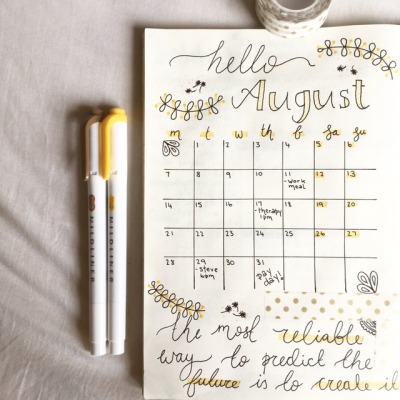 hello
August
m t w th f sa su
1 2 3 4 5 6
7 8 9 10 11 12 13
-work
meal
14 15 16 17 18 19 20
-therapy
1pm
21 22 23 24 25 26 27
28 29 30 31
-steve
6pm
pay
day!
the most reliable
way to predict the
future is to create it
MILDLINER
MILDLINER